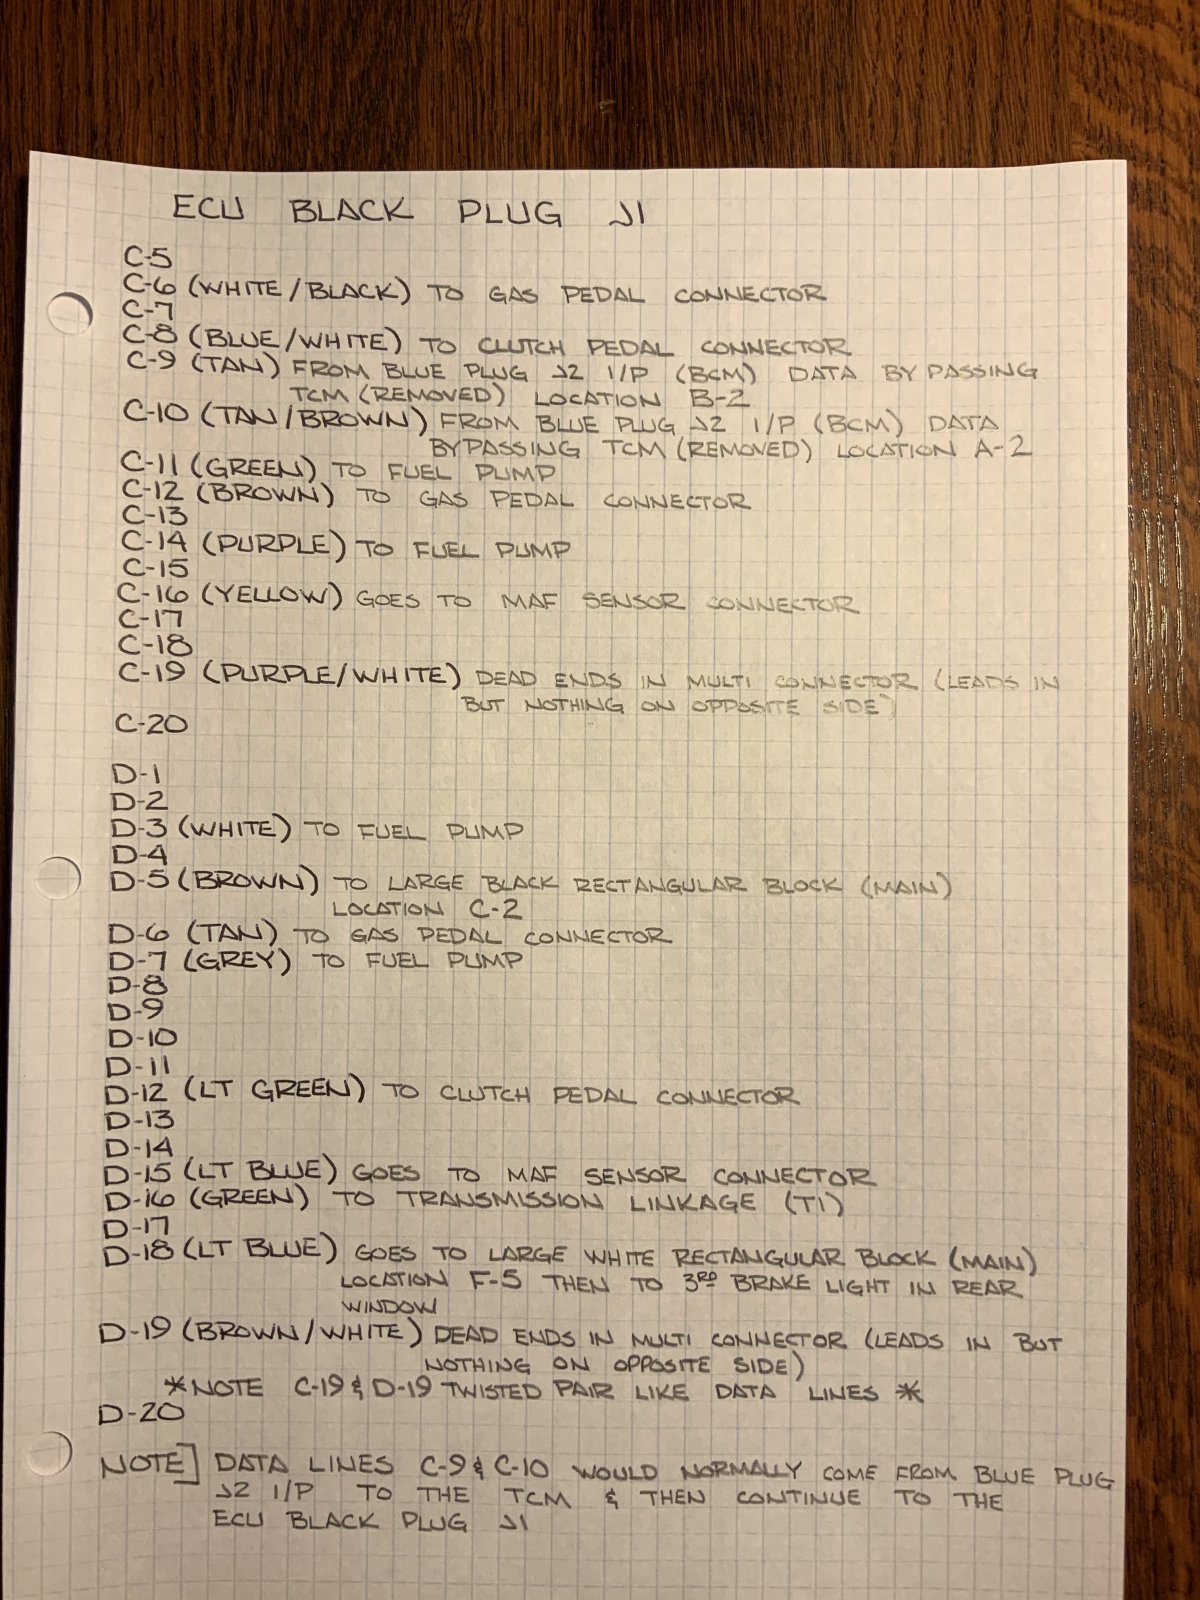 ECU BLACK PLUG J1
C-5
C-6 (WHITE/BLACK) TO GAS PEDAL CONNECTOR
C-7
C-8 (BLUE/WHITE) TO CLUTCH PEDAL CONNECTOR
C-9 (TAN) FROM BLUE PLUG J2 I/P (BCM) DATA BYPASSING
TCM (REMOVED) LOCATION B-2
C-10 (TAN/BROWN) FROM BLUE PLUG J2 I/P (BCM) DATA
BYPASSING TCM (REMOVED) LOCATION A-2
C-11 (GREEN) TO FUEL PUMP
C-12 (BROWN) TO GAS PEDAL CONNECTOR
C-13
C-14 (PURPLE) TO FUEL PUMP
C-15
C-16 (YELLOW) GOES TO MAF SENSOR CONNECTOR
C-17
C-18
C-19 (PURPLE/WHITE) DEAD ENDS IN MULTI CONNECTOR (LEADS IN
BUT NOTHING ON OPPOSITE SIDE)
C-20
D-1
D-2
D-3 (WHITE) TO FUEL PUMP
D-4
D-5 (BROWN) TO LARGE BLACK RECTANGULAR BLOCK (MAIN)
LOCATION C-2
D-6 (TAN) TO GAS PEDAL CONNECTOR
D-7 (GREY) TO FUEL PUMP
D-8
D-9
D-10
D-11
D-12 (LT GREEN) TO CLUTCH PEDAL CONNECTOR
D-13
D-14
D-15 (LT BLUE) GOES TO MAF SENSOR CONNECTOR
D-16 (GREEN) TO TRANSMISSION LINKAGE (T1)
D-17
D-18 (LT BLUE) GOES TO LARGE WHITE RECTANGULAR BLOCK (MAIN)
LOCATION F-5 THEN TO 3RD BRAKE LIGHT IN REAR
WINDOW
D-19 (BROWN/WHITE) DEAD ENDS IN MULTI CONNECTOR (LEADS IN BUT
NOTHING ON OPPOSITE SIDE)
*NOTE C-19 & D-19 TWISTED PAIR LIKE DATA LINES *
D-20
NOTE] DATA LINES C-9 & C-10 WOULD NORMALLY COME FROM BLUE PLUG
J2 I/P TO THE TCM & THEN CONTINUE TO THE
ECU BLACK PLUG J1